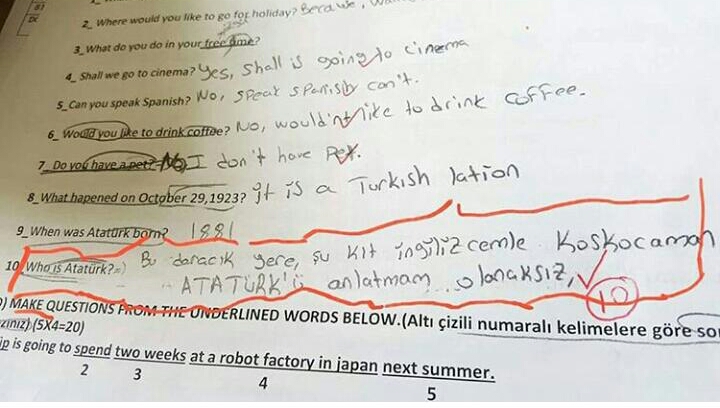 2_ Where would you like to go for holiday? Because,
3_ What do you do in your free time?
4_ Shall we go to cinema? Yes, shall is going to cinema
5_ Can you speak Spanish? No, speak spanish can't.
6_ Would you like to drink coffee? No, wouldn't like to drink coffee.
7_ Do you have a pet? No, I don't have pet.
8_ What hapened on October 29,1923? it is a Turkish lation
9_ When was Atatürk born? 1881
10_ Who is Atatürk? =) Bu daracık yere, şu kıt ingilizcemle koskocaman
ATATÜRK'ü anlatmam olanaksız,
10
D) MAKE QUESTIONS FROM THE UNDERLINED WORDS BELOW.(Altı çizili numaralı kelimelere göre
(5X4=20)
is going to spend two weeks at a robot factory in japan next summer.
2 3 4 5